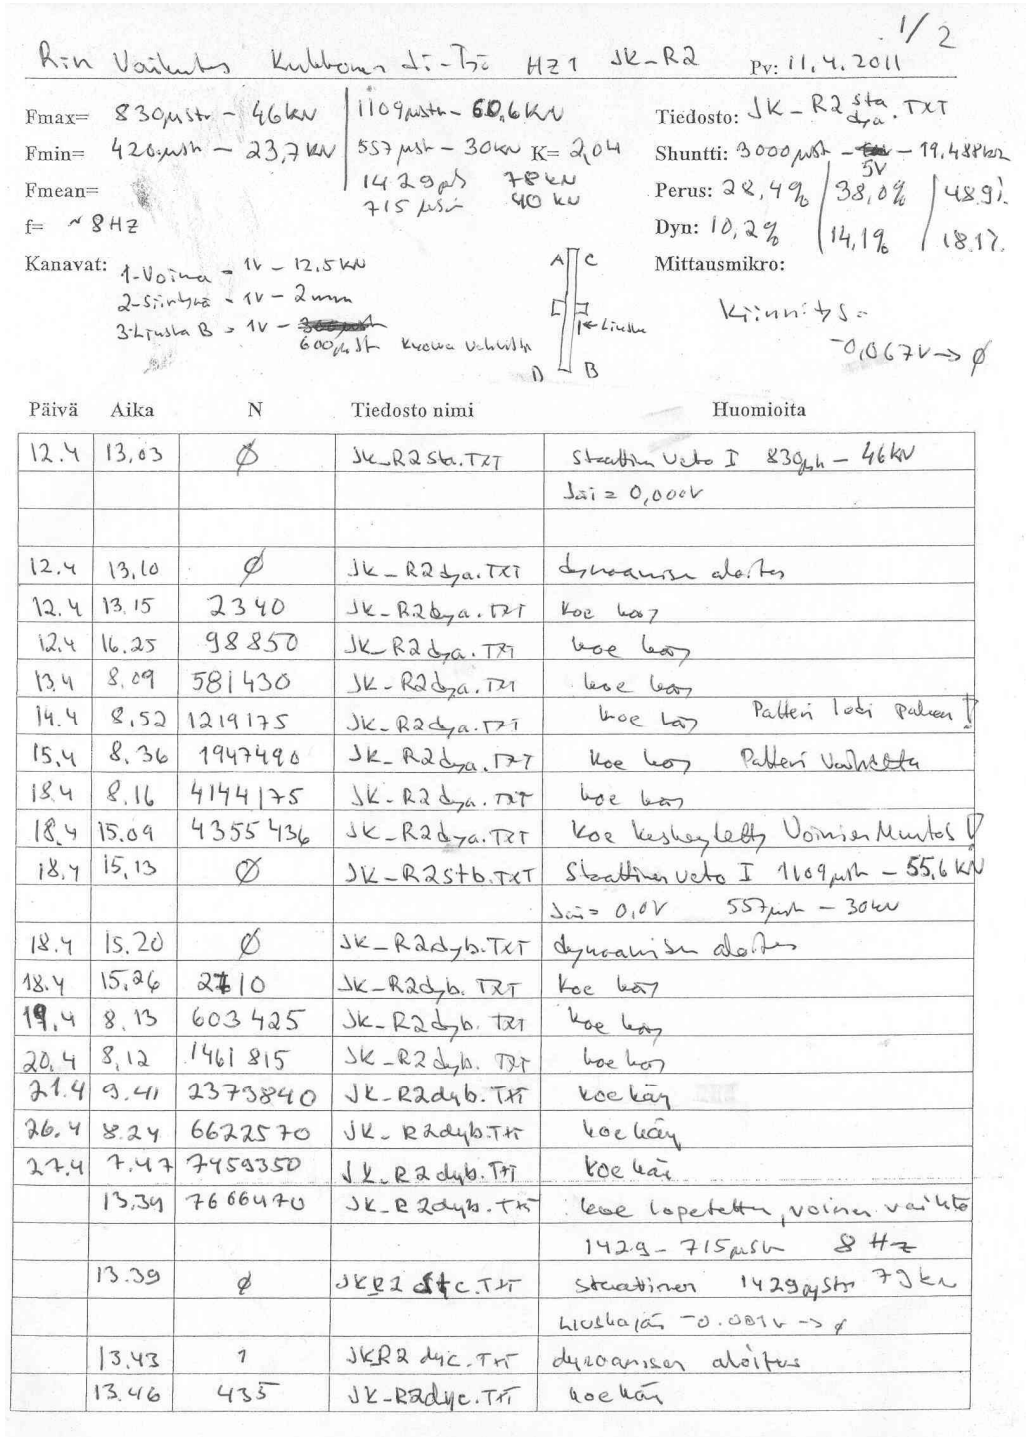 1/2
Rin Vaikutus Kukkonen Ji-Tsi HZ1 JK-R2 Pv: 11.4.2011
Fmax= 830µstr - 46kN 1109µstr - 60,6kN Tiedosto: JK-R2 sta dya .TXT
Fmin= 420µstr - 23,7kN 557µstr - 30kN K= 2,04 Shuntti: 3000µstr - 5V - 19,488kΩ
Fmean= 1429µS 78kN Perus: 28,4% / 38,0% / 48.9%
715 µstr 40 kN
f= ~8Hz Dyn: 10,2% / 14,1% / 18.1%
Kanavat: 1-Voima = 1V - 12,5kN A C Mittausmikro:
2-Siirtymä = 1V - 2mm Kiinnitys =
3-Liuska B = 1V - 600µstr Liuska
D B -0,067V → Ø
Päivä Aika N Tiedosto nimi Huomioita
12.4 13,03 Ø JK-R2sta.TXT Staattinen veto I 830µstr - 46kN
Jäi = 0,000V
12.4 13,10 Ø JK-R2dya.TXT dynaamisen aloitus
12.4 13.15 2340 JK-R2dya.TXT koe käy
12.4 16.25 98850 JK-R2dya.TXT koe käy
13.4 8.09 581430 JK-R2dya.TXT koe käy
14.4 8,52 1219175 JK-R2dya.TXT koe käy Patteri
15.4 8.36 1947490 JK-R2dya.TXT koe käy Patteri Vaihdettu
18.4 8.16 4144175 JK-R2dya.TXT koe käy
18.4 15.09 4355436 JK-R2dya.TXT koe keskeytetty Voimien Muutos!
18.4 15,13 Ø JK-R2stb.TXT Staattinen veto I 1109µstr - 55,6kN
Jäi = 0,0V 557µstr - 30kN
18.4 15.20 Ø JK-R2dyb.TXT dynaamisen aloitus
18.4 15,26 2710 JK-R2dyb.TXT koe käy
19.4 8.13 603425 JK-R2dyb.TXT koe käy
20.4 8,12 1461815 JK-R2dyb.TXT koe käy
21.4 9.41 2373840 JK-R2dyb.TXT koe käy
26.4 8.24 6622570 JK-R2dyb.TXT koe käy
27.4 7.47 7459350 JK-R2dyb.TXT koe käy
13.34 7666470 JK-R2dyb.TXT koe lopetettu, voiman vaihto
1429 - 715µstr 8 Hz
13.39 Ø JKR2 stc.TXT staattinen 1429µstr 79kN
Liuska jäi -0.001V → Ø
13,43 1 JKR2 dyc.TXT dynaamisen aloitus
13.46 435 JK-R2dyc.TXT koe käy